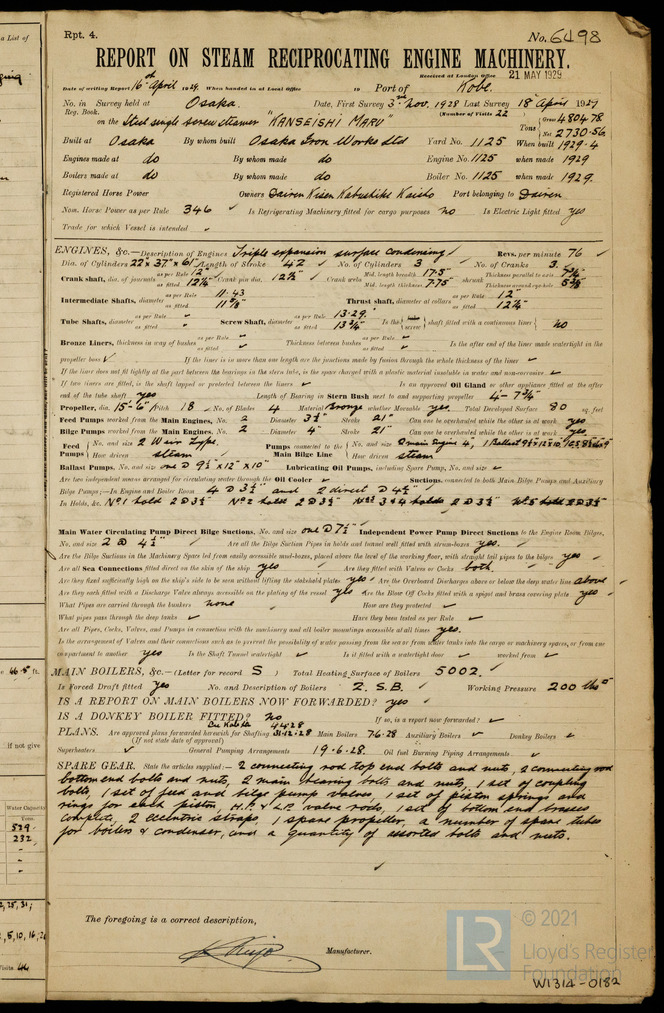 Rpt. 4.
No. 6498
REPORT ON STEAM RECIPROCATING ENGINE MACHINERY.
Received at London Office 21 MAY 1929
Date of writing Report 16th April 1929. When handed in at Local Office 19 Port of Kobe.
No. in Survey held at Osaka. Date, First Survey 3rd Nov. 1928 Last Survey 18 April 1929
Reg. Book. (Number of Visits 22)
on the Steel single screw steamer "KANSEISHI MARU" Tons Gross 4804.78 Net 2730.56
Built at Osaka By whom built Osaka Iron Works Ltd Yard No. 1125 When built 1929-4
Engines made at do By whom made do Engine No. 1125 when made 1929
Boilers made at do By whom made do Boiler No. 1125 when made 1929.
Registered Horse Power Owners Dairen Kisen Kabushiki Kaisha Port belonging to Dairen
Nom. Horse Power as per Rule 346 Is Refrigerating Machinery fitted for cargo purposes no Is Electric Light fitted yes
Trade for which Vessel is intended
ENGINES, &c.—Description of Engines Triple expansion surface condensing Revs. per minute 76
Dia. of Cylinders 22" x 37" x 61" Length of Stroke 42 No. of Cylinders 3 No. of Cranks 3.
Crank shaft, dia. of journals as per Rule 12" as fitted 12¼" Crank pin dia. 12¾" Crank webs Mid. length breadth 17.5" Mid. length thickness 7.75" shrunk Thickness parallel to axis 7¾" Thickness around eye-hole 5⅜"
Intermediate Shafts, diameter as per Rule 11.43 as fitted 11⅞" Thrust shaft, diameter at collars as per Rule 12" as fitted 12¼"
Tube Shafts, diameter as per Rule as fitted Screw Shaft, diameter as per Rule 13.29 as fitted 13¾" Is the screw shaft fitted with a continuous liner no
Bronze Liners, thickness in way of bushes as per Rule as fitted Thickness between bushes as per Rule as fitted Is the after end of the liner made watertight in the
propeller boss If the liner is in more than one length are the junctions made by fusion through the whole thickness of the liner
If the liner does not fit tightly at the part between the bearings in the stern tube, is the space charged with a plastic material insoluble in water and non-corrosive
If two liners are fitted, is the shaft lapped or protected between the liners Is an approved Oil Gland or other appliance fitted at the after
end of the tube shaft yes Length of Bearing in Stern Bush next to and supporting propeller 4'-7¾"
Propeller, dia. 15'-6" Pitch 18 No. of Blades 4 Material Bronze whether Moveable yes. Total Developed Surface 80 sq. feet
Feed Pumps worked from the Main Engines, No. 2 Diameter 3½" Stroke 21" Can one be overhauled while the other is at work yes
Bilge Pumps worked from the Main Engines, No. 2 Diameter 4" Stroke 21" Can one be overhauled while the other is at work yes
Feed Pumps No. and size 2 Weir Type. How driven steam Pumps connected to the Main Bilge Line No. and size 2 main Engine 4", 1 Ballast 9½ x 12 x 10, How driven steam
Ballast Pumps, No. and size one D 9½" x 12" x 10" Lubricating Oil Pumps, including Spare Pump, No. and size
Are two independent means arranged for circulating water through the Oil Cooler Suctions, connected to both Main Bilge Pumps and Auxiliary
Bilge Pumps;—In Engine and Boiler Room 4 D 3½" and 2 direct D 4½"
In Holds, &c. No 1 hold 2 D 3½" No 2 hold 2 D 3½" No 3 & 4 holds 2 D 3½" No 5 hold 2 D 3½"
Main Water Circulating Pump Direct Bilge Suctions, No. and size one D 7½" Independent Power Pump Direct Suctions to the Engine Room Bilges,
No. and size 2 D 4½" Are all the Bilge Suction Pipes in holds and tunnel well fitted with strum-boxes yes.
Are the Bilge Suctions in the Machinery Space led from easily accessible mud-boxes, placed above the level of the working floor, with straight tail pipes to the bilges yes
Are all Sea Connections fitted direct on the skin of the ship yes Are they fitted with Valves or Cocks both.
Are they fixed sufficiently high on the ship's side to be seen without lifting the stokehold plates yes Are the Overboard Discharges above or below the deep water line above
Are they each fitted with a Discharge Valve always accessible on the plating of the vessel yes Are the Blow Off Cocks fitted with a spigot and brass covering plate yes
What Pipes are carried through the bunkers none How are they protected
What pipes pass through the deep tanks Have they been tested as per Rule
Are all Pipes, Cocks, Valves, and Pumps in connection with the machinery and all boiler mountings accessible at all times yes.
Is the arrangement of Valves and their connections such as to prevent the possibility of water passing from the sea or from water tanks into the cargo or machinery spaces, or from one
compartment to another yes Is the Shaft Tunnel watertight Is it fitted with a watertight door worked from
MAIN BOILERS, &c.—(Letter for record S ) Total Heating Surface of Boilers 5002.
Is Forced Draft fitted yes No. and Description of Boilers 2. S.B. Working Pressure 200 lbs
IS A REPORT ON MAIN BOILERS NOW FORWARDED? yes
IS A DONKEY BOILER FITTED? no If so, is a report now forwarded?
PLANS. Are approved plans forwarded herewith for Shafting 31-12-28 Main Boilers 7-6-28 Auxiliary Boilers Donkey Boilers
(If not state date of approval)
Superheaters General Pumping Arrangements 19-6-28. Oil fuel Burning Piping Arrangements
SPARE GEAR. State the articles supplied:— 2 connecting rod top end bolts and nuts, 2 connecting rod
bottom end bolts and nuts, 2 main bearing bolts and nuts, 1 set of coupling
bolts, 1 set of feed and bilge pump valves, 1 set of piston springs and
rings for each piston, H.P. & L.P. valve rods, 1 set of bottom end brasses
complete, 2 eccentric straps, 1 spare propeller, a number of spare tubes
for boilers & condenser, and a quantity of assorted bolts and nuts.
The foregoing is a correct description,
Manufacturer.
© 2021
Lloyd's Register
Foundation
W1314-0182